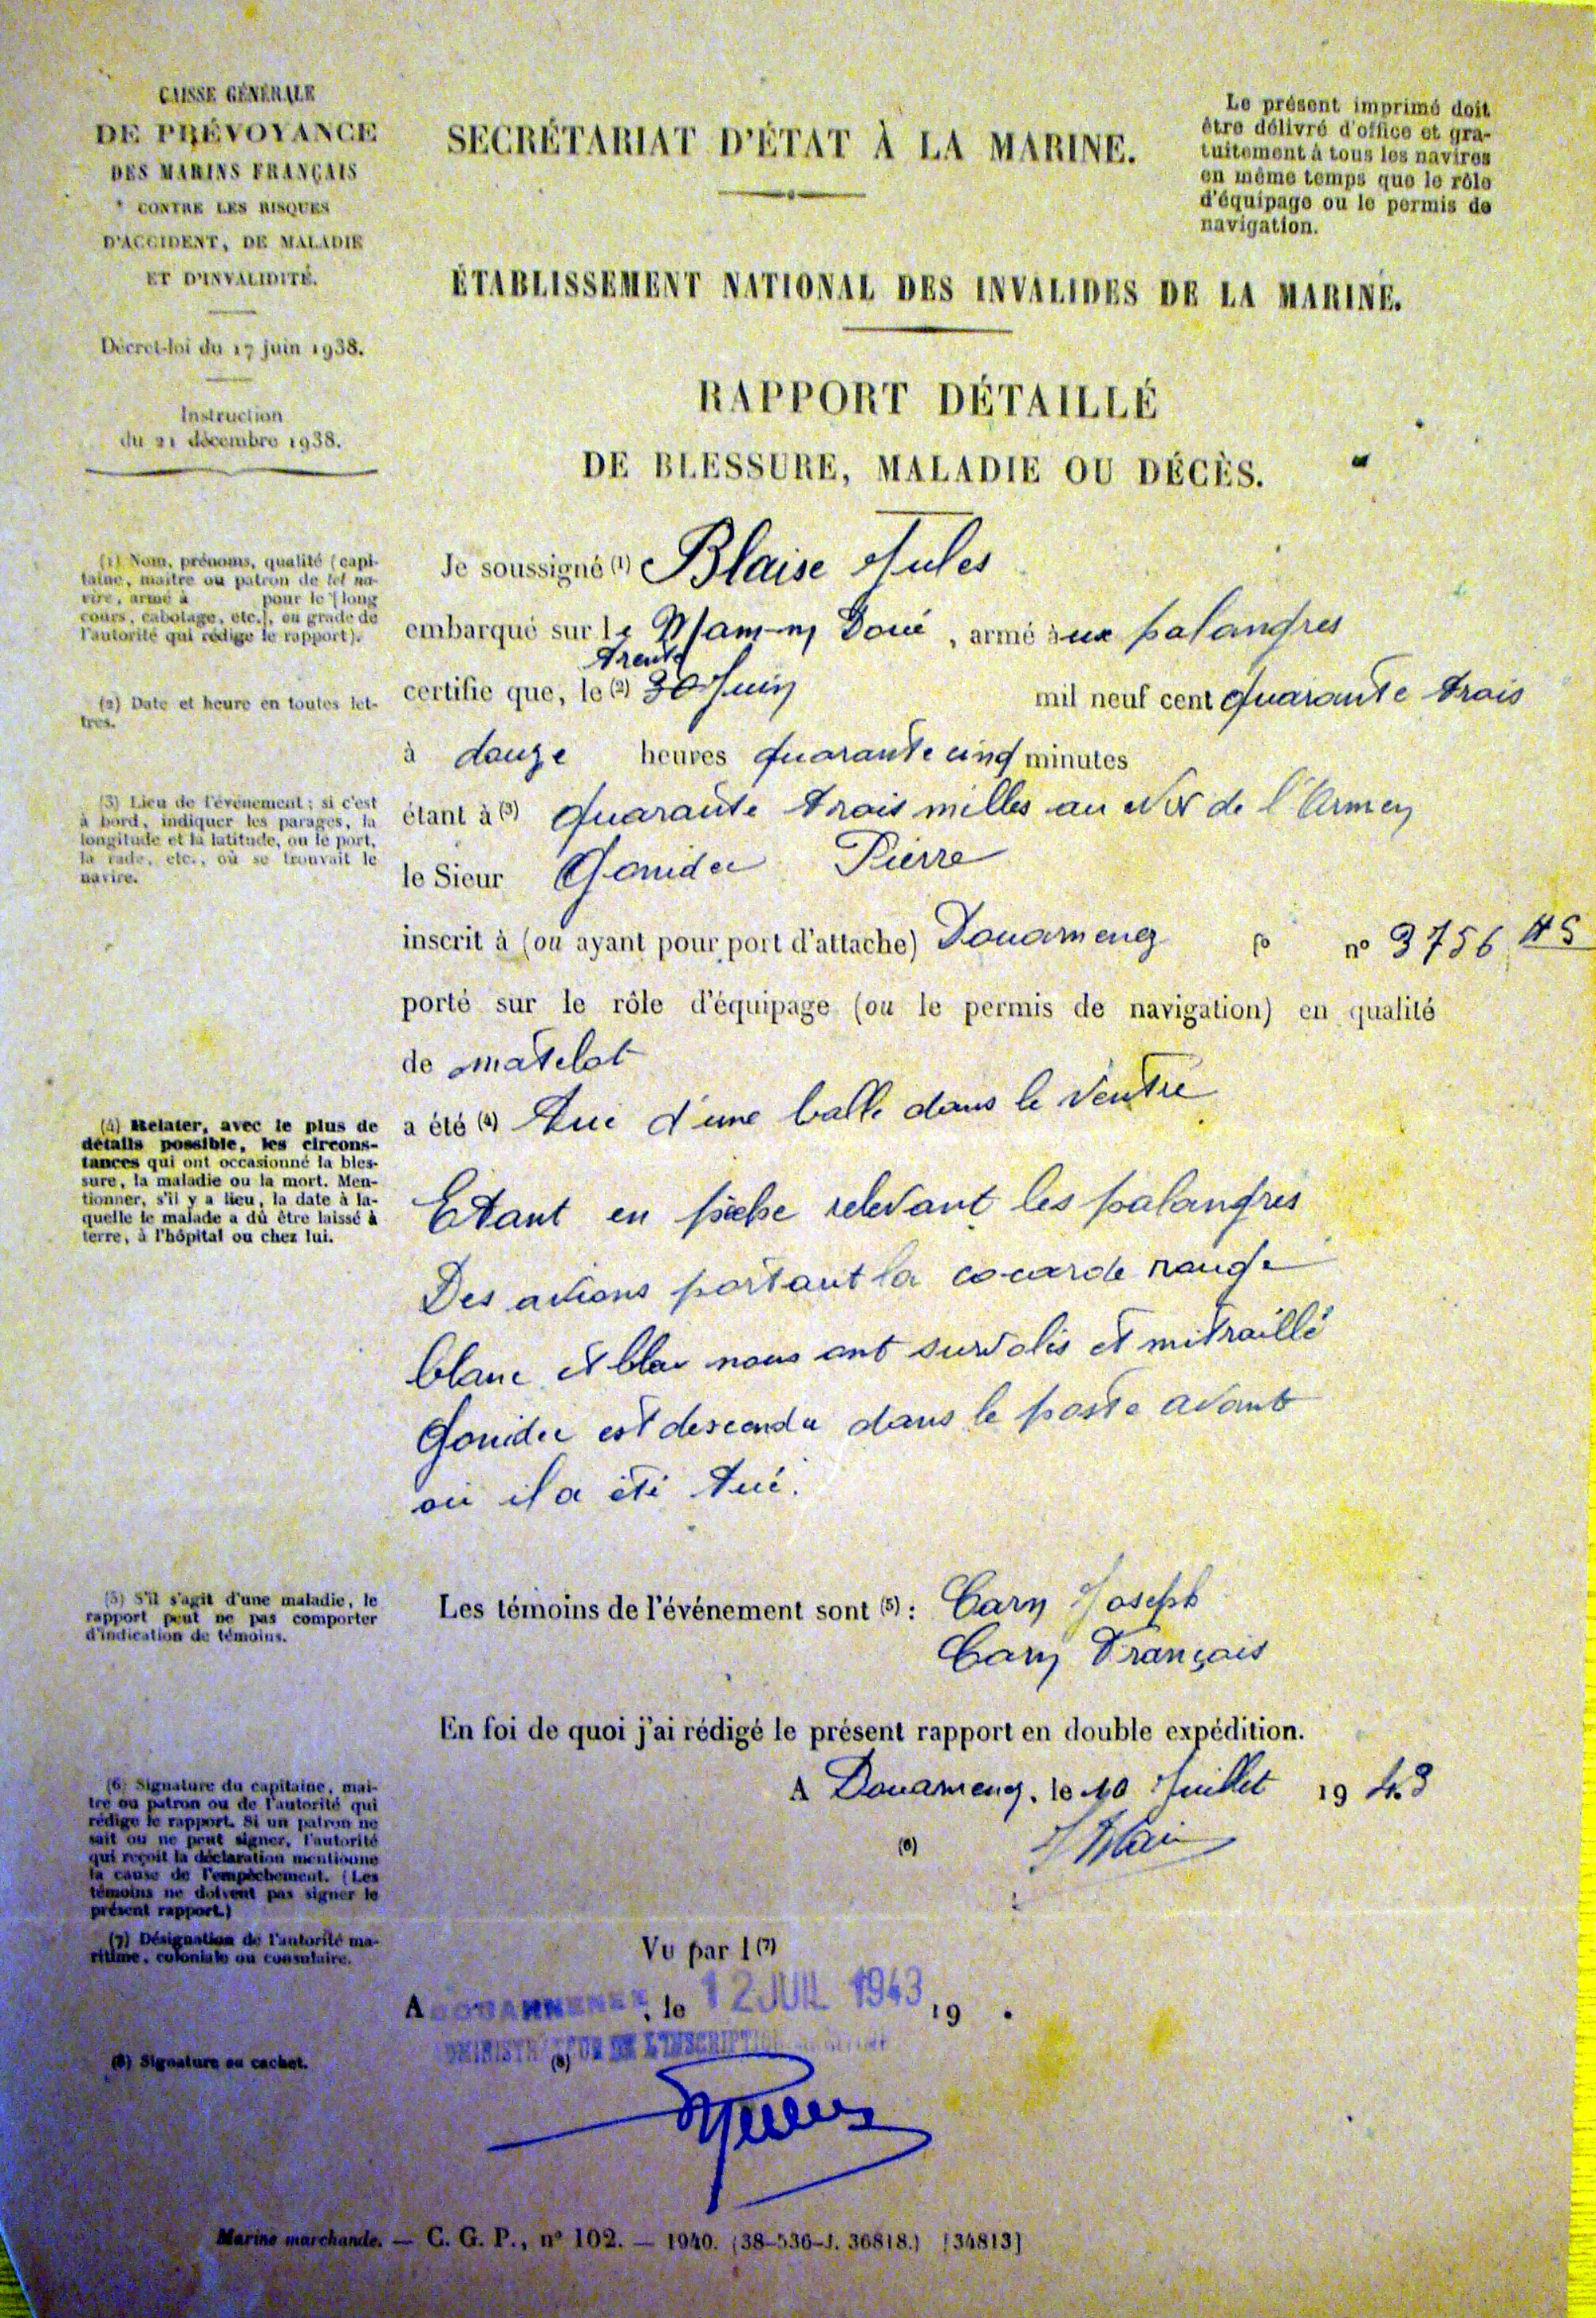 CAISSE GÉNÉRALE
DE PRÉVOYANCE
DES MARINS FRANÇAIS
CONTRE LES RISQUES
D'ACCIDENT, DE MALADIE
ET D'INVALIDITÉ.
Décret-loi du 17 juin 1938.
Instruction
du 21 décembre 1938.
SECRÉTARIAT D'ÉTAT À LA MARINE.
Le présent imprimé doit
être délivré d'office et gra-
tuitement à tous les navires
en même temps que le rôle
d'équipage ou le permis de
navigation.
ÉTABLISSEMENT NATIONAL DES INVALIDES DE LA MARINE.
RAPPORT DÉTAILLÉ
DE BLESSURE, MALADIE OU DÉCÈS.
(1) Nom, prénoms, qualité (capi-
taine, maître ou patron de tel na-
vire, armé à pour le [long
cours, cabotage, etc.], ou grade de
l'autorité qui rédige le rapport).
Je soussigné (1) Blaise Jules
embarqué sur le Mam-my Doué, armé aux palangres
trente
certifie que, le (2) 30 Juin mil neuf cent quarante trois
(2) Date et heure en toutes let-
tres.
à douze heures quarante cinq minutes
(3) Lieu de l'événement; si c'est
à bord, indiquer les parages, la
longitude et la latitude, ou le port,
la rade, etc., où se trouvait le
navire.
étant à (3) quarante trois milles au de l'Armen
le Sieur Gouidec Pierre
inscrit à (ou ayant pour port d'attache) Douarnenez fo n° 3756 HS
porté sur le rôle d'équipage (ou le permis de navigation) en qualité
de matelot
(4) Relater, avec le plus de
détails possible, les circons-
tances qui ont occasionné la bles-
sure, la maladie ou la mort. Men-
tionner, s'il y a lieu, la date à la-
quelle le malade a dû être laissé à
terre, à l'hôpital ou chez lui.
a été (4) tué d'une balle dans le ventre
Etant en pêche relevant les palangres
Des avions portant la cocarde rouge
blanc et bleu nous ont survolés et mitraillé
Gouidec est descendu dans le poste avant
où il a été tué.
(5) S'il s'agit d'une maladie, le
rapport peut ne pas comporter
d'indication de témoins.
Les témoins de l'événement sont (5) : Cary Joseph
Cary François
En foi de quoi j'ai rédigé le présent rapport en double expédition.
A Douarnenez, le 10 Juillet 1943
(6) Signature du capitaine, maî-
tre ou patron ou de l'autorité qui
rédige le rapport. Si un patron ne
sait ou ne peut signer, l'autorité
qui reçoit la déclaration mentionne
la cause de l'empêchement. (Les
témoins ne doivent pas signer le
présent rapport.)
(6)
(7) Désignation de l'autorité ma-
ritime, coloniale ou consulaire.
Vu par l (7)
A DOUARNENEZ, le 12 JUIL 1943 19 .
ADMINISTRATEUR DE L'INSCRIPTION MARITIME
(8)
(8) Signature ou cachet.
Marine marchande. — C. G. P., n° 102. — 1940. (38-536-J. 36818.) [34813]